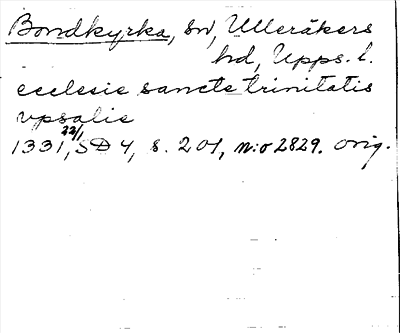 Bondkyrka, sn, Ulleråkers
hd, Upps. l.
ecclesie sancte trinitatis
vpsalie
1331 22/1, SD 4, s. 201, n:o 2829. orig.